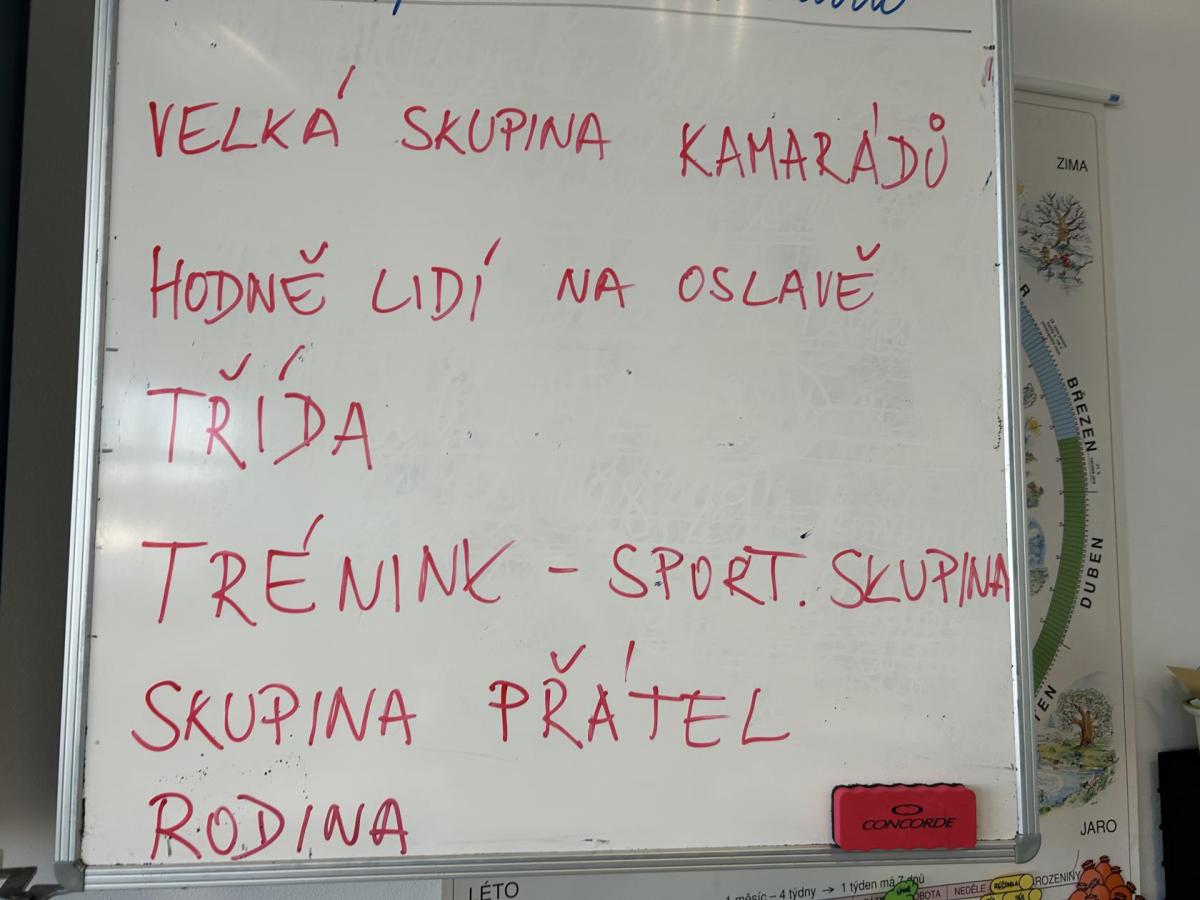 VELKÁ SKUPINA KAMARÁDŮ
HODNĚ LIDÍ NA OSLAVĚ
TŘÍDA
TRÉNINK – SPORT. SKUPINA
SKUPINA PŘÁTEL
RODINA
CONCORDE
ZIMA
BŘEZEN
DUBEN
JARO
LÉTO
1 měsíc – 4 týdny → 1 týden má 7 dnů
NEDĚLE